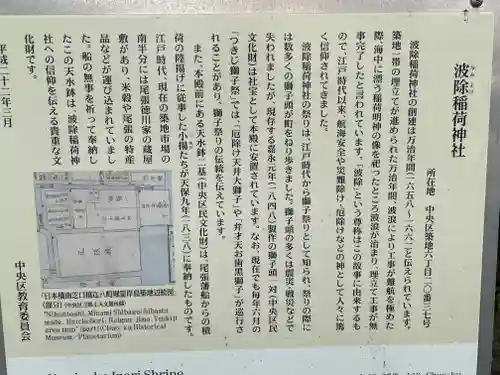 波除稲荷神社
なみよけ
所在地 中央区築地六丁目二〇番三七号
波除稲荷神社の創建は万治年間(一六五八~六一)と伝えられています。
築地一帯の埋立てが進められた万治年間、波浪により工事が難航を極めた
際、海中に漂う稲荷明神の像を祀ったところ波浪が治まり、埋立て工事が無
事完了したと言われています。「波除」という尊称はこの故事に由来するも
ので、江戸時代以来、航海安全や災難除け・厄除けなどの神として人々に篤
く信仰されてきました。
波除稲荷神社の祭りは、江戸時代から獅子祭りとして知られ、祭りの際に
は数多くの獅子頭が町をねり歩きました。獅子頭の多くは震災・戦災などで
失われましたが、現存する嘉永元年(一八四八)製作の獅子頭一対(中央区民
文化財)は社宝として本殿に安置されています。なお、現在でも毎年六月の
「つきじ獅子祭」では、「厄除け天井大獅子」や「弁才天お歯黒獅子」が巡行さ
れることがあり、獅子祭りの伝統を伝えています。
また、本殿前にある天水鉢二基(中央区民文化財)は、尾張藩船からの積
荷の陸揚げに従事した小揚たちが天保九年(一八三八)に奉納したものです。
江戸時代、現在の築地市場の
南半分には尾張徳川家の蔵屋
敷があり、米穀や尾張の特産
品などが運び込まれていまし
た。船の無事を祈って奉納し
たこの天水鉢は、波除稲荷神
社への信仰を伝える貴重な文
化財です。
平成二十二年三月
中央区教育委員会
「日本橋南芝口橋迄八町堀霊岸島築地辺絵図」
(部分)(中央区立郷土天文館所蔵)
"Nihonbashi, Minami Shibaguchibashi
made, Hatchobori, Reigan jima, Tsukiji
area map" (part) (Chuo ku Historical
Museum / Planetarium)
Inari Shrine
Chuo-ku